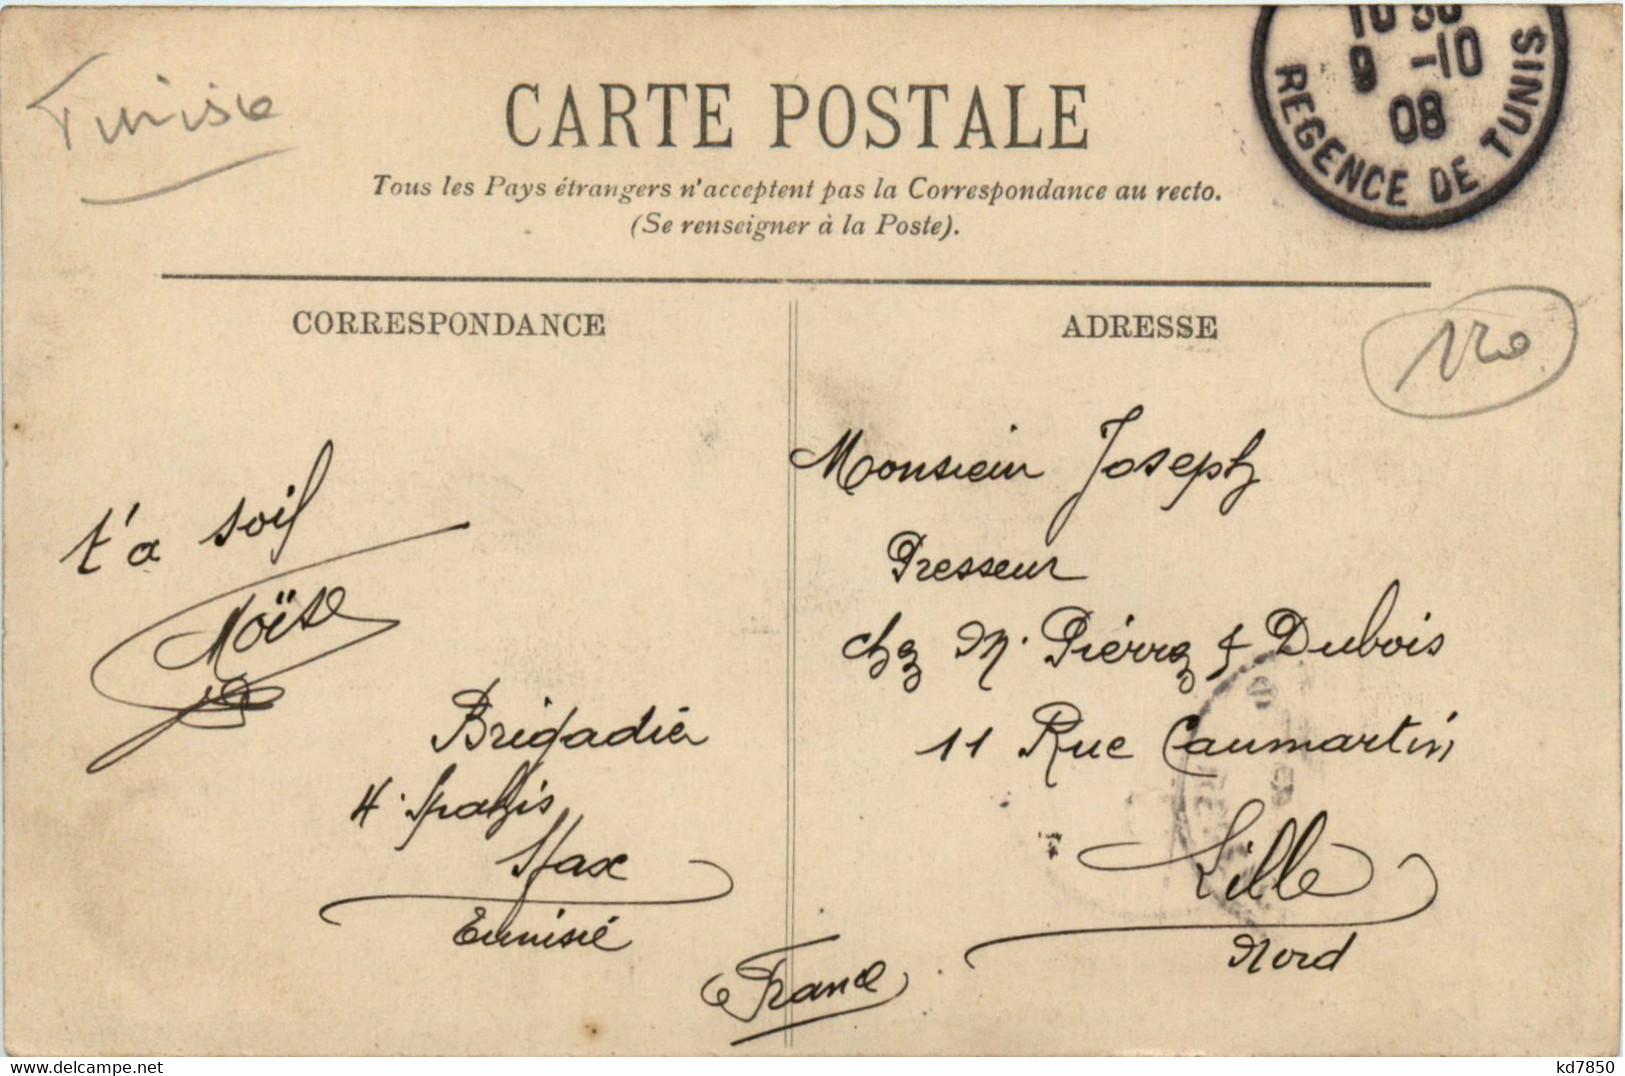 Tunisie
CARTE POSTALE
Tous les Pays étrangers n'acceptent pas la Correspondance au recto.
(Se renseigner à la Poste).
10 30
9 -10
08
REGENCE DE TUNIS
CORRESPONDANCE
t'a soif
Moïse
Brigadier
4. Spahis
Sfax
Tunisie
ADRESSE
120
Monsieur Joseph
Presseur
chez M. Pierrez & Dubois
11 Rue Caumartin
Lille
Nord
France
kd7850